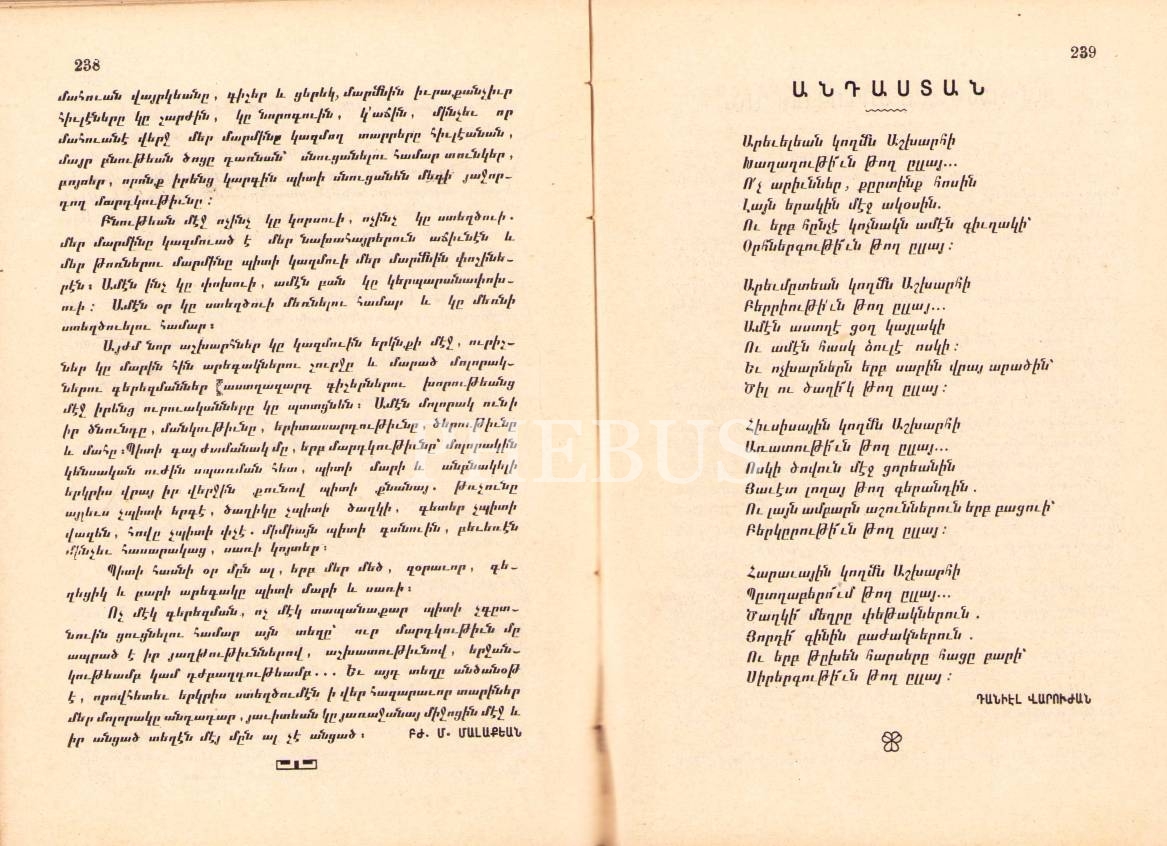 238
մահուան վայրկեանը, գիշեր և ցերեկ, մարմնին իւրաքանչիւր
հիւլէները կը շարժին, կը նորոգուին, կ'աճին, մինչեւ որ
մահուանէ վերջ մեր մարմինը կազմող տարրերը հիւլէանան,
մայր բնութեան ծոցը դառնան՝ սնուցանելու համար տունկեր,
բոյսեր, որոնք իրենց կարգին պիտի սնուցանեն մեզի յաջոր-
դող մարդկութիւնը։
Բնութեան մէջ ոչինչ կը կորսուի, ոչինչ կը ստեղծուի.
մեր մարմինը կազմուած է մեր նախահայրերուն աճիւնէն և
մեր թոռներու մարմինը պիտի կազմուի մեր մարմնին փոշինե-
րէն։ Ամէն ինչ կը փոխուի, ամէն բան կը կերպարանափոխ-
ուի։ Ամէն օր կը ստեղծուի մեռնելու համար և կը մեռնի
ստեղծուելու համար։
Այժմ նոր աշխարհներ կը կազմուին երկնքի մէջ, ուրիշ-
ներ կը մարին հին արեգակներու շուրջը և մարած մոլորակ-
ներու գերեզմաններ աստղազարդ գիշերներու խորութեանց
մէջ իրենց ուրուականները կը պտտցնեն։ Ամէն մոլորակ ունի
իր ծնունդը, մանկութիւնը, երիտասարդութիւնը ծերութիւնը
և մահը։ Պիտի գայ ժամանակ մը, երբ մարդկութիւնը՝ մոլորակին
կենսական ուժին սպառման հետ, պիտի մարի և անբնակելի
երկրիս վրայ իր վերջին քունով պիտի քնանայ. Թռչունը
այլեւս չպիտի երգէ, ծաղիկը չպիտի ծաղկի, գետեր չպիտի
վազեն, հովը չպիտի փչէ. միմիայն պիտի գտնուին, բեւեռէն
մինչեւ հասարակաց, սառի կոյտեր։
Պիտի հասնի օր մըն ալ, երբ մեր մեծ, զօրաւոր, գե-
ղեցիկ և բարի արեգակը պիտի մարի և սառի։
Ոչ մէկ գերեզման, ոչ մէկ տապանաքար պիտի չգըտ-
նուին ցուցնելու համար այն տեղը՝ ուր մարդկութիւն մը
ապրած է իր յաղթութիւններով, աշխատութիւնով, երջան-
կութեամբ կամ դժբաղդութեամբ... Եւ այդ տեղը անծանօթ
է, որովհետեւ երկրիս ստեղծումէն ի վեր հազարաւոր տարիներ
մեր մոլորակը անդադար, յաւիտեան կը յառաջանայ միջոցին մէջ և
իր անցած տեղէն մէյ մըն ալ չէ անցած։
ԲԺ. Մ. ՄԱԼԱՔԵԱՆ
239
ԱՆԴԱՍՏԱՆ
Արեւելեան կողմն Աշխարհի
Խաղաղութի՜ւն թող ըլլայ...
Ո՛չ արիւններ, քըրտինք հոսին
Լայն երակին մէջ ակօսին.
Ու երբ հընչէ կոչնակն ամէն գիւղակի՝
Օրհներգութի՜ւն թող ըլլայ։
Արեւմըտեան կողմն Աշխարհի
Բերրիութի՜ւն թող ըլլայ...
Ամէն աստղէ ցօղ կայլակի
Ու ամէն հասկ ձուլէ ոսկի։
Եւ ոչխարներն երբ սարին վրայ արածին՝
Ծիլ ու ծաղի՜կ թող ըլլայ։
Հիւսիսային կողմն Աշխարհի
Առատութի՜ւն թող ըլլայ...
Ոսկի ծովուն մէջ ցորեանին
Յաւէտ լողայ թող գերանդին.
Ու լայն ամբարն աղուններուն երբ բացուի՝
Բերկըրութի՜ւն թող ըլլայ։
Հարաւային կողմն Աշխարհի
Պըտղաբերո՜ւմ թող ըլլայ...
Ծաղկի՜ մեղրը փեթակներուն.
Յորդի՜ գինին բաժակներուն.
Ու երբ թըխեն հարսերը հացը բարի՝
Սիրերգութի՜ւն թող ըլլայ։
ԴԱՆԻԷԼ ՎԱՐՈՒԺԱՆ
PHEBUS